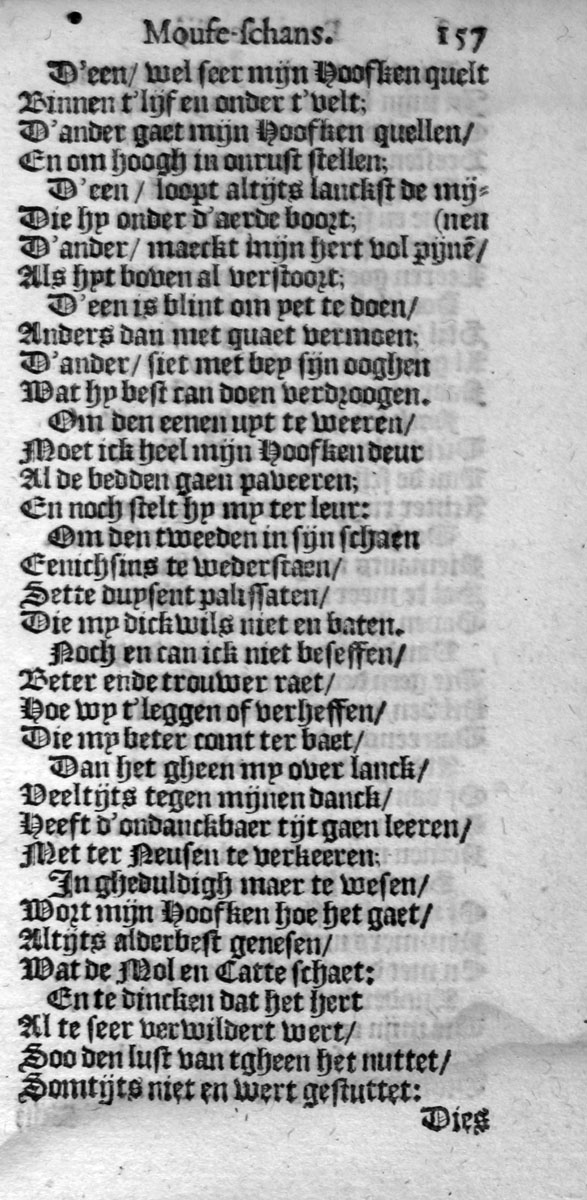 Mouse-schans. 157
D'een/ wel seer mijn Hoofken quelt
Binnen t'lijf en onder t'velt;
D'ander gaet mijn Hoofken quellen/
En om hoogh in onrust stellen;
D'een / loopt altijts lanckst de mij-
Die hy onder d'aerde boort; (nen
D'ander/ maeckt mijn hert vol pijnē/
Als hyt boven al verstoort;
D'een is blint om yet te doen/
Anders dan met quaet vermoen;
D'ander/ siet met bey sijn ooghen
Wat hy best can doen verdroogen.
Om den eenen uyt te weeren/
Moet ick heel mijn Hoofken deur
Al de bedden gaen paveeren;
En noch stelt hy my ter leur:
Om den tweeden in sijn schaen
Eenichsins te wederstaen/
Sette duysent palissaten/
Die my dickwils niet en baten.
Noch en can ick niet beseffen/
Beter ende trouwer raet/
Hoe wy t'leggen of verheffen/
Die my beter comt ter baet/
Dan het gheen my over lanck/
Veeltijts tegen mijnen danck/
Heeft d'ondanckbaer tijt gaen leeren/
Met ter Neusen te verkeeren;
In gheduldigh maer te wesen/
Wort mijn Hoofken hoe het gaet/
Altijts alderbest genesen/
Wat de Mol en Catte schaet:
En te dincken dat het hert
Al te seer verwildert wert/
Soo den lust van tgheen het nuttet/
Somtijts niet en wert gestuttet:
Dies